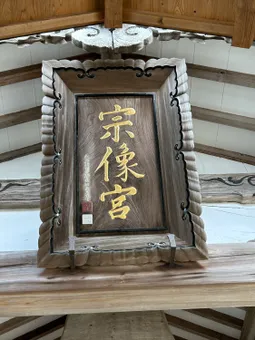 宗像宮